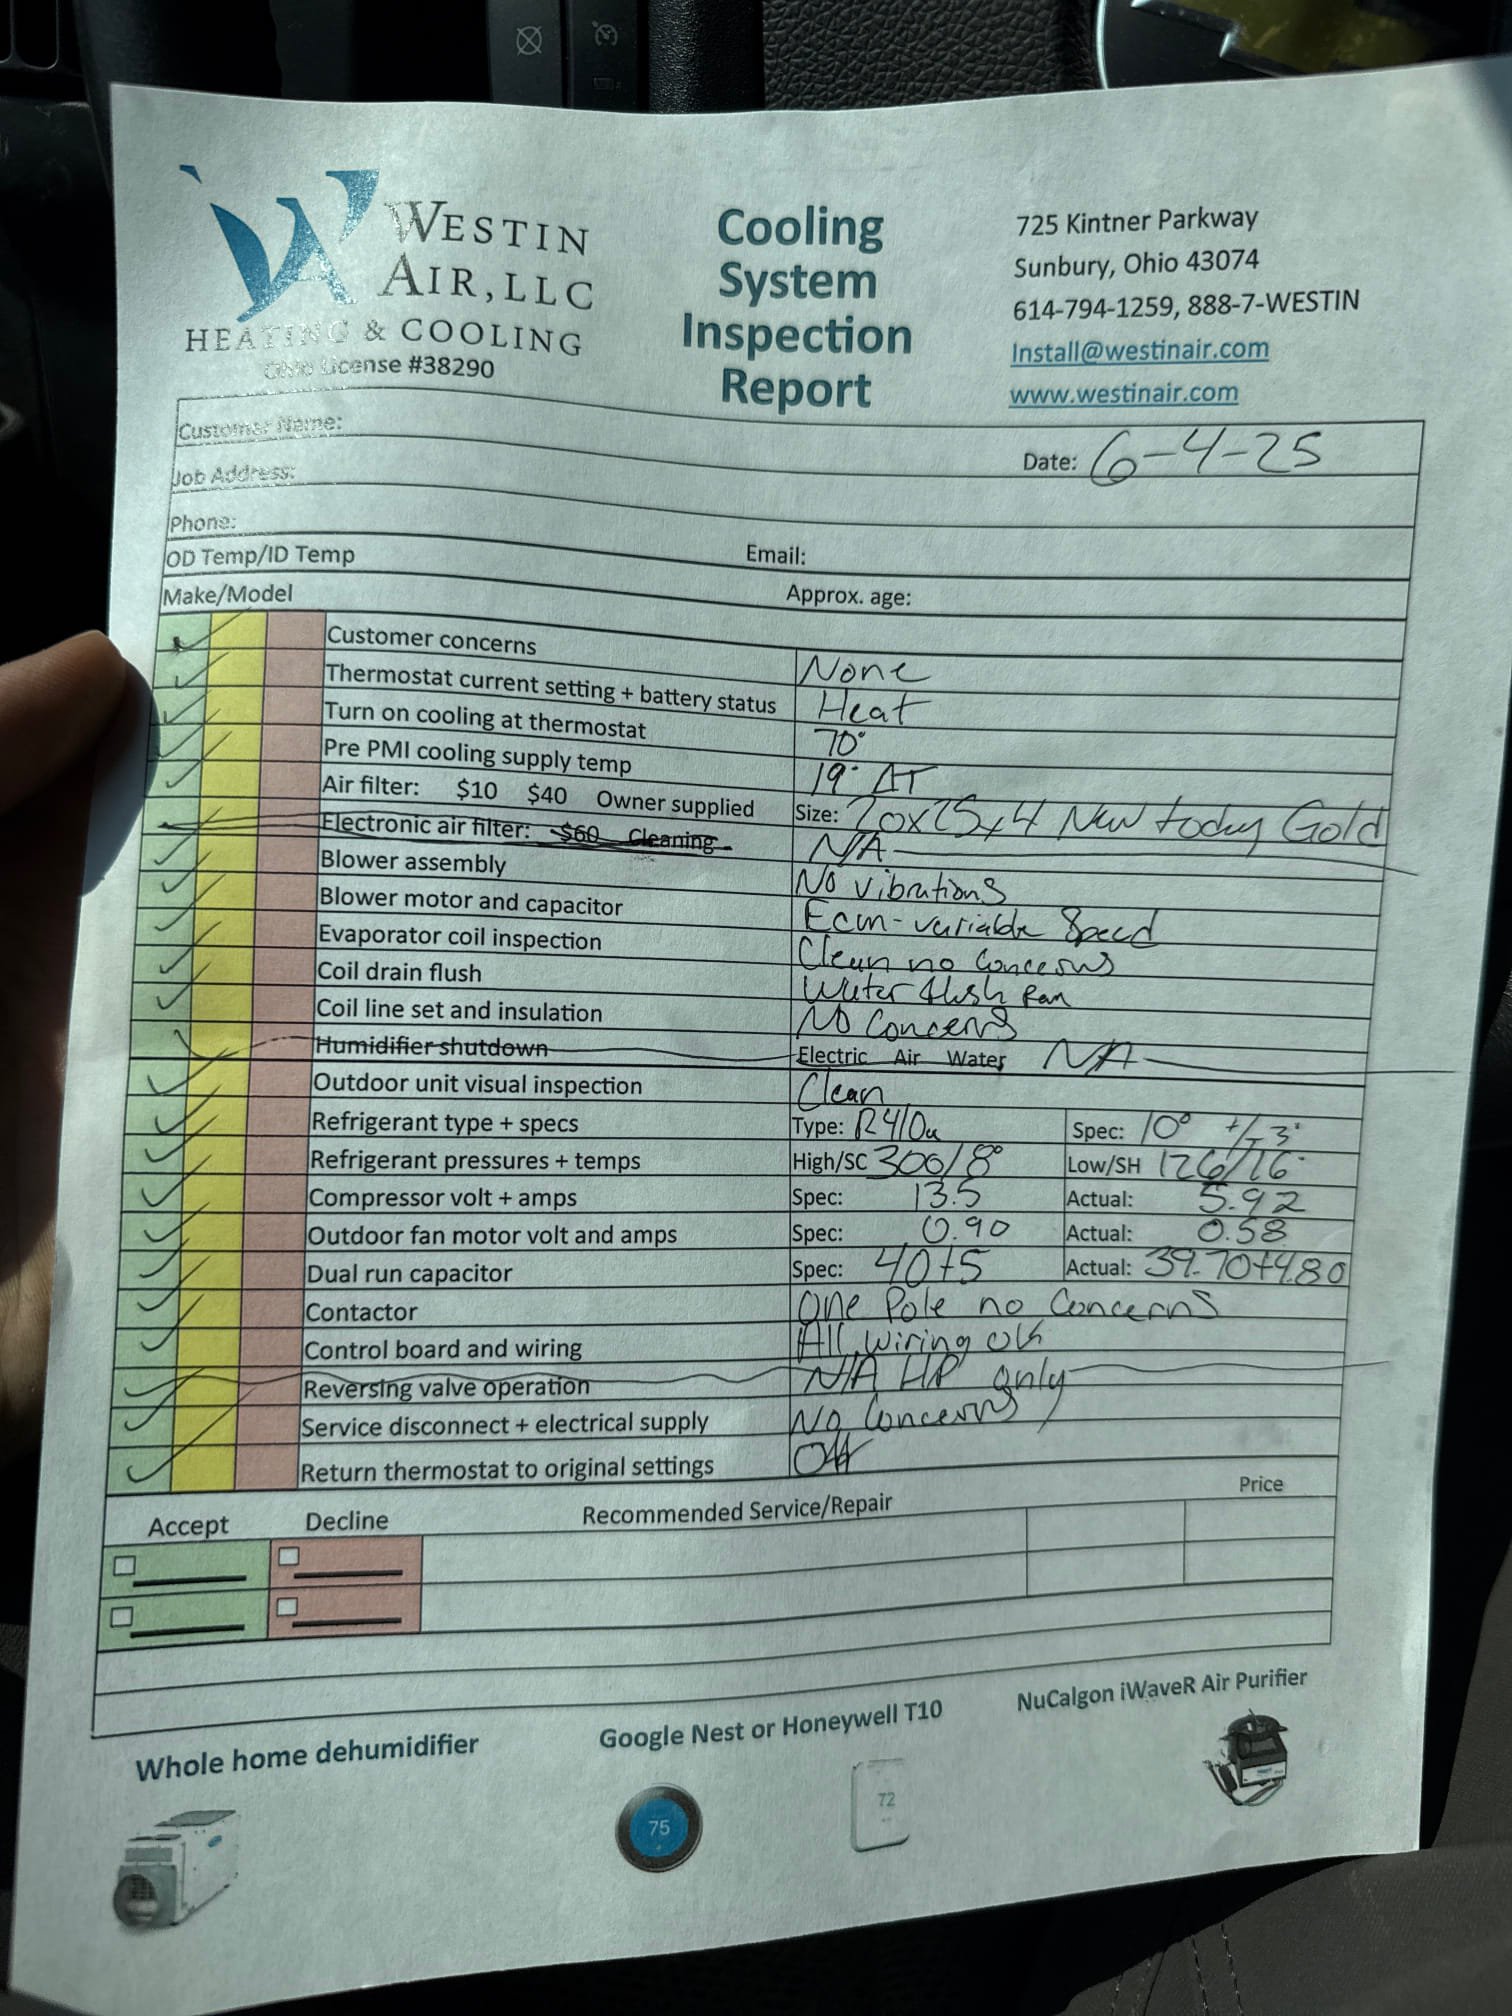 WESTIN
AIR, LLC
HEATING & COOLING
Ohio License #38290
Cooling
System
Inspection
Report
725 Kintner Parkway
Sunbury, Ohio 43074
614-794-1259, 888-7-WESTIN
Install@westinair.com
www.westinair.com
Customer Name:
Date: 6-4-25
Job Address:
Phone:
OD Temp/ID Temp Email:
Make/Model Approx. age:
Customer concerns None
Thermostat current setting + battery status Heat
Turn on cooling at thermostat 70°
Pre PMI cooling supply temp 19° ΔT
Air filter: $10 $40 Owner supplied Size: 20x25x4 New today Gold
Electronic air filter: $60 Cleaning N/A
Blower assembly No vibrations
Blower motor and capacitor Ecm-variable Speed
Evaporator coil inspection Clean no concerns
Coil drain flush Water flush Pan
Coil line set and insulation No concerns
Humidifier shutdown Electric Air Water N/A
Outdoor unit visual inspection Clean
Refrigerant type + specs Type: R410a Spec: 10° +/- 3°
Refrigerant pressures + temps High/SC 300/8° Low/SH 126/16°
Compressor volt + amps Spec: 13.5 Actual: 5.92
Outdoor fan motor volt and amps Spec: 0.90 Actual: 0.58
Dual run capacitor Spec: 40+5 Actual: 39.70+4.80
Contactor One Pole no concerns
Control board and wiring All wiring ok
Reversing valve operation N/A HP only
Service disconnect + electrical supply No Concerns
Return thermostat to original settings Off
Accept Decline Recommended Service/Repair Price
Whole home dehumidifier
Google Nest or Honeywell T10
NuCalgon iWaveR Air Purifier
75
72